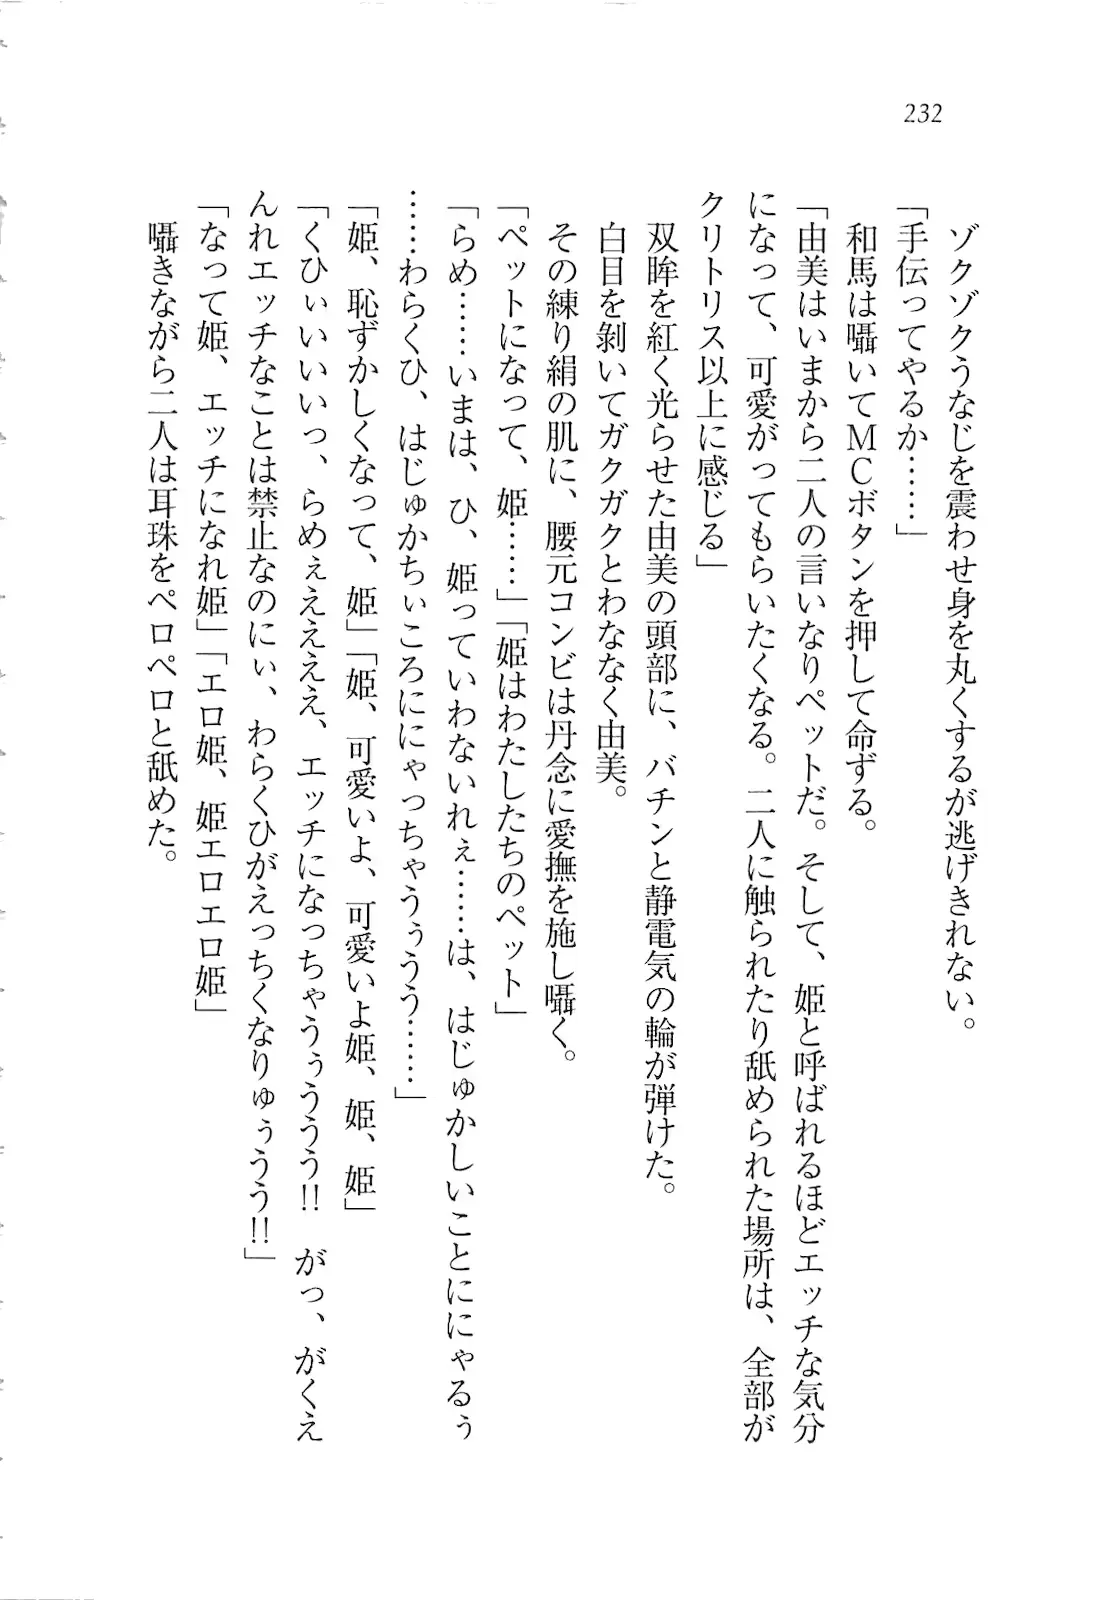 232
ゾクゾクうなじを震わせ身を丸くするが逃げきれない。
「手伝ってやるか……」
和馬は囁いてMCボタンを押して命ずる。
「由美はいまから二人の言いなりペットだ。そして、姫と呼ばれるほどエッチな気分
になって、可愛がってもらいたくなる。二人に触られたり舐められた場所は、全部が
クリトリス以上に感じる」
双眸を紅く光らせた由美の頭部に、バチンと静電気の輪が弾けた。
白目を剝いてガクガクとわななく由美。
その練り絹の肌に、腰元コンビは丹念に愛撫を施し囁く。
「ペットになって、姫……」「姫はわたしたちのペット」
「らめ……いまは、ひ、姫っていわないれぇ……は、はじゅかしいことににゃるぅ
……わらくひ、はじゅかちぃころににゃっちゃうぅうう……」
「姫、恥ずかしくなって、姫」「姫、可愛いよ、可愛いよ姫、姫、姫」
「くひぃいいいっ、らめぇええええ、エッチになっちゃうぅううう!!　がっ、がくえ
んれエッチなことは禁止なのにぃ、わらくひがえっちくなりゅぅうう!!」
「なって姫、エッチになれ姫」「エロ姫、姫エロエロ姫」
囁きながら二人は耳珠をペロペロと舐めた。